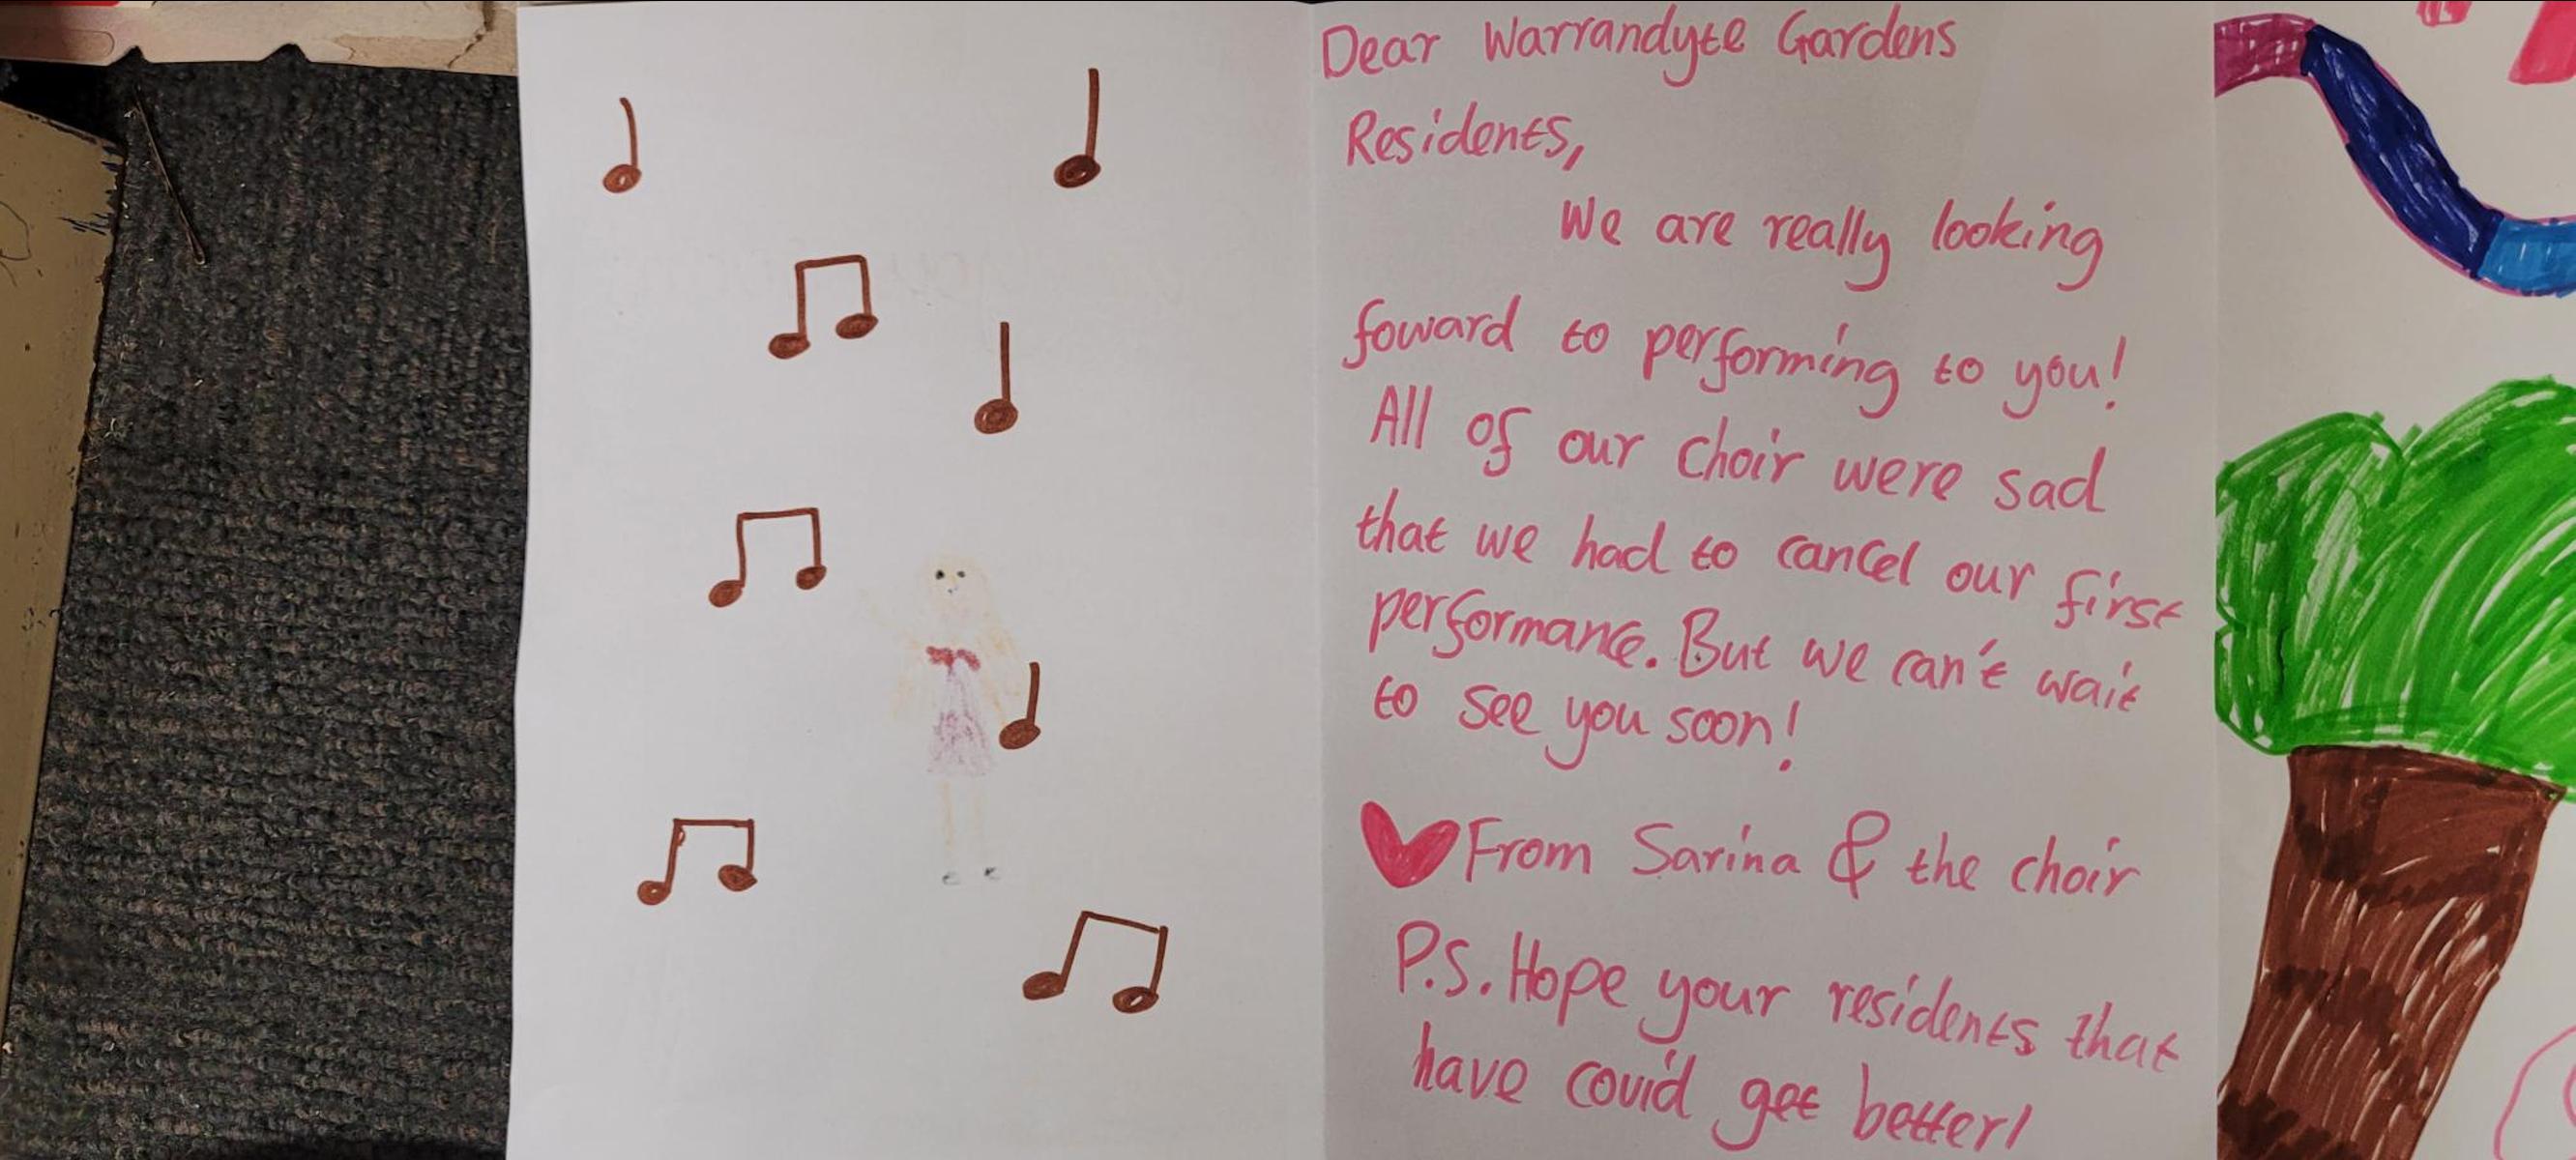 Dear Warrandyte Gardens
Residents,
We are really looking
foward to performing to you!
All of our choir were sad
that we had to cancel our first
performance. But we can't wait
to see you soon!
From Sarina & the choir
P.S. Hope your residents that
have covid get better!